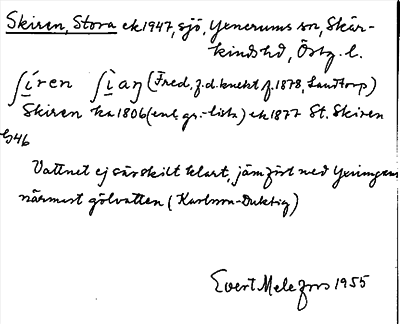 Skiren, Stora ek 1947, sjö, Yxnerums sn, Skär-
kinds hd, Östg. l.
ʃíren ʃìaŋ (Fred. f.d. knekt f. 1878, Sandtorp)
Skiren ha 1806 (enl. gr.-lista) ek 1877 St. Skiren
b46
Vattnet ej särskilt klart, jämfört med Yxningen
närmast gölvatten (Karlsson-Duktig)
Evert Melefors 1955